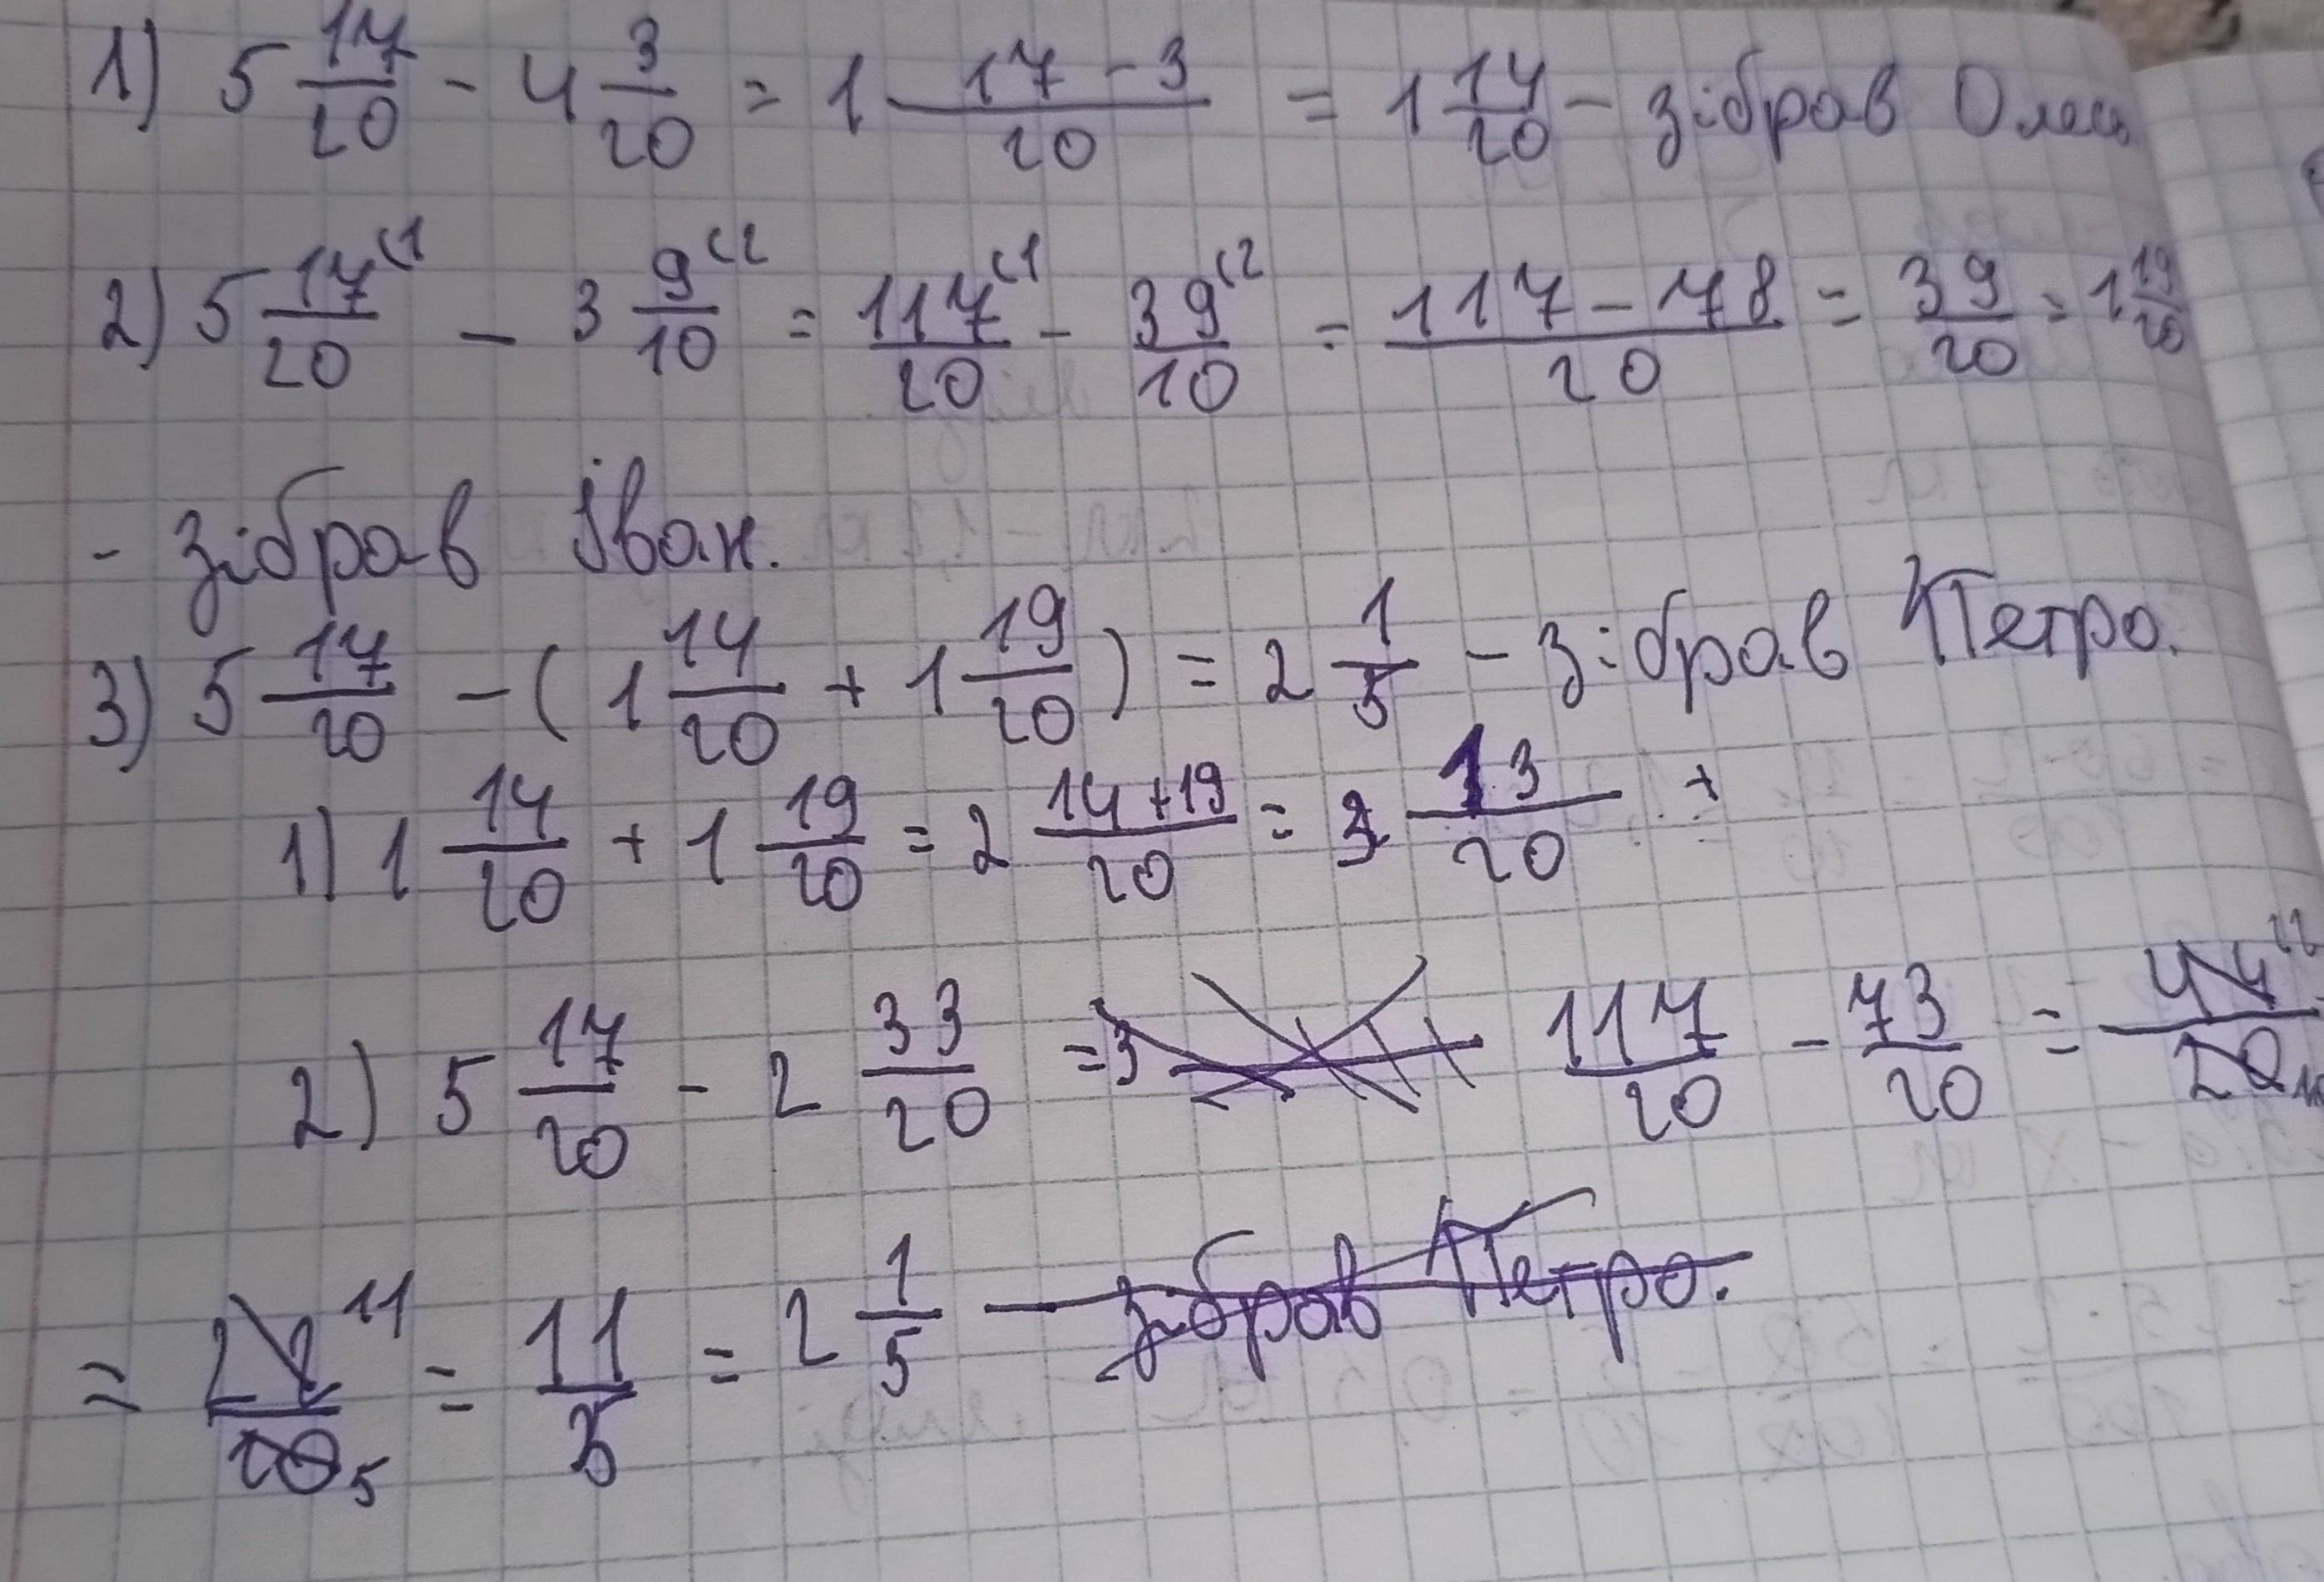 1) 5 17/20 - 4 3/20 = 1 17-3/20 = 1 14/20 - зібрав Олесь
2) 5 17/20 (1 - 3 9/10 (2 = 117/20 (1 - 39/10 (2 = 117-78/20 = 39/20 = 1 19/20
- зібрав Іван.
3) 5 17/20 - (1 14/20 + 1 19/20) = 2 1/5 - зібрав Петро.
1) 1 14/20 + 1 19/20 = 2 14+19/20 = 3 13/20 +
2) 5 17/20 - 2 33/20 = 3 117/20 - 73/20 = 44/20 22 10
= 22/10 11 5 = 11/5 = 2 1/5 - зібрав Петро.